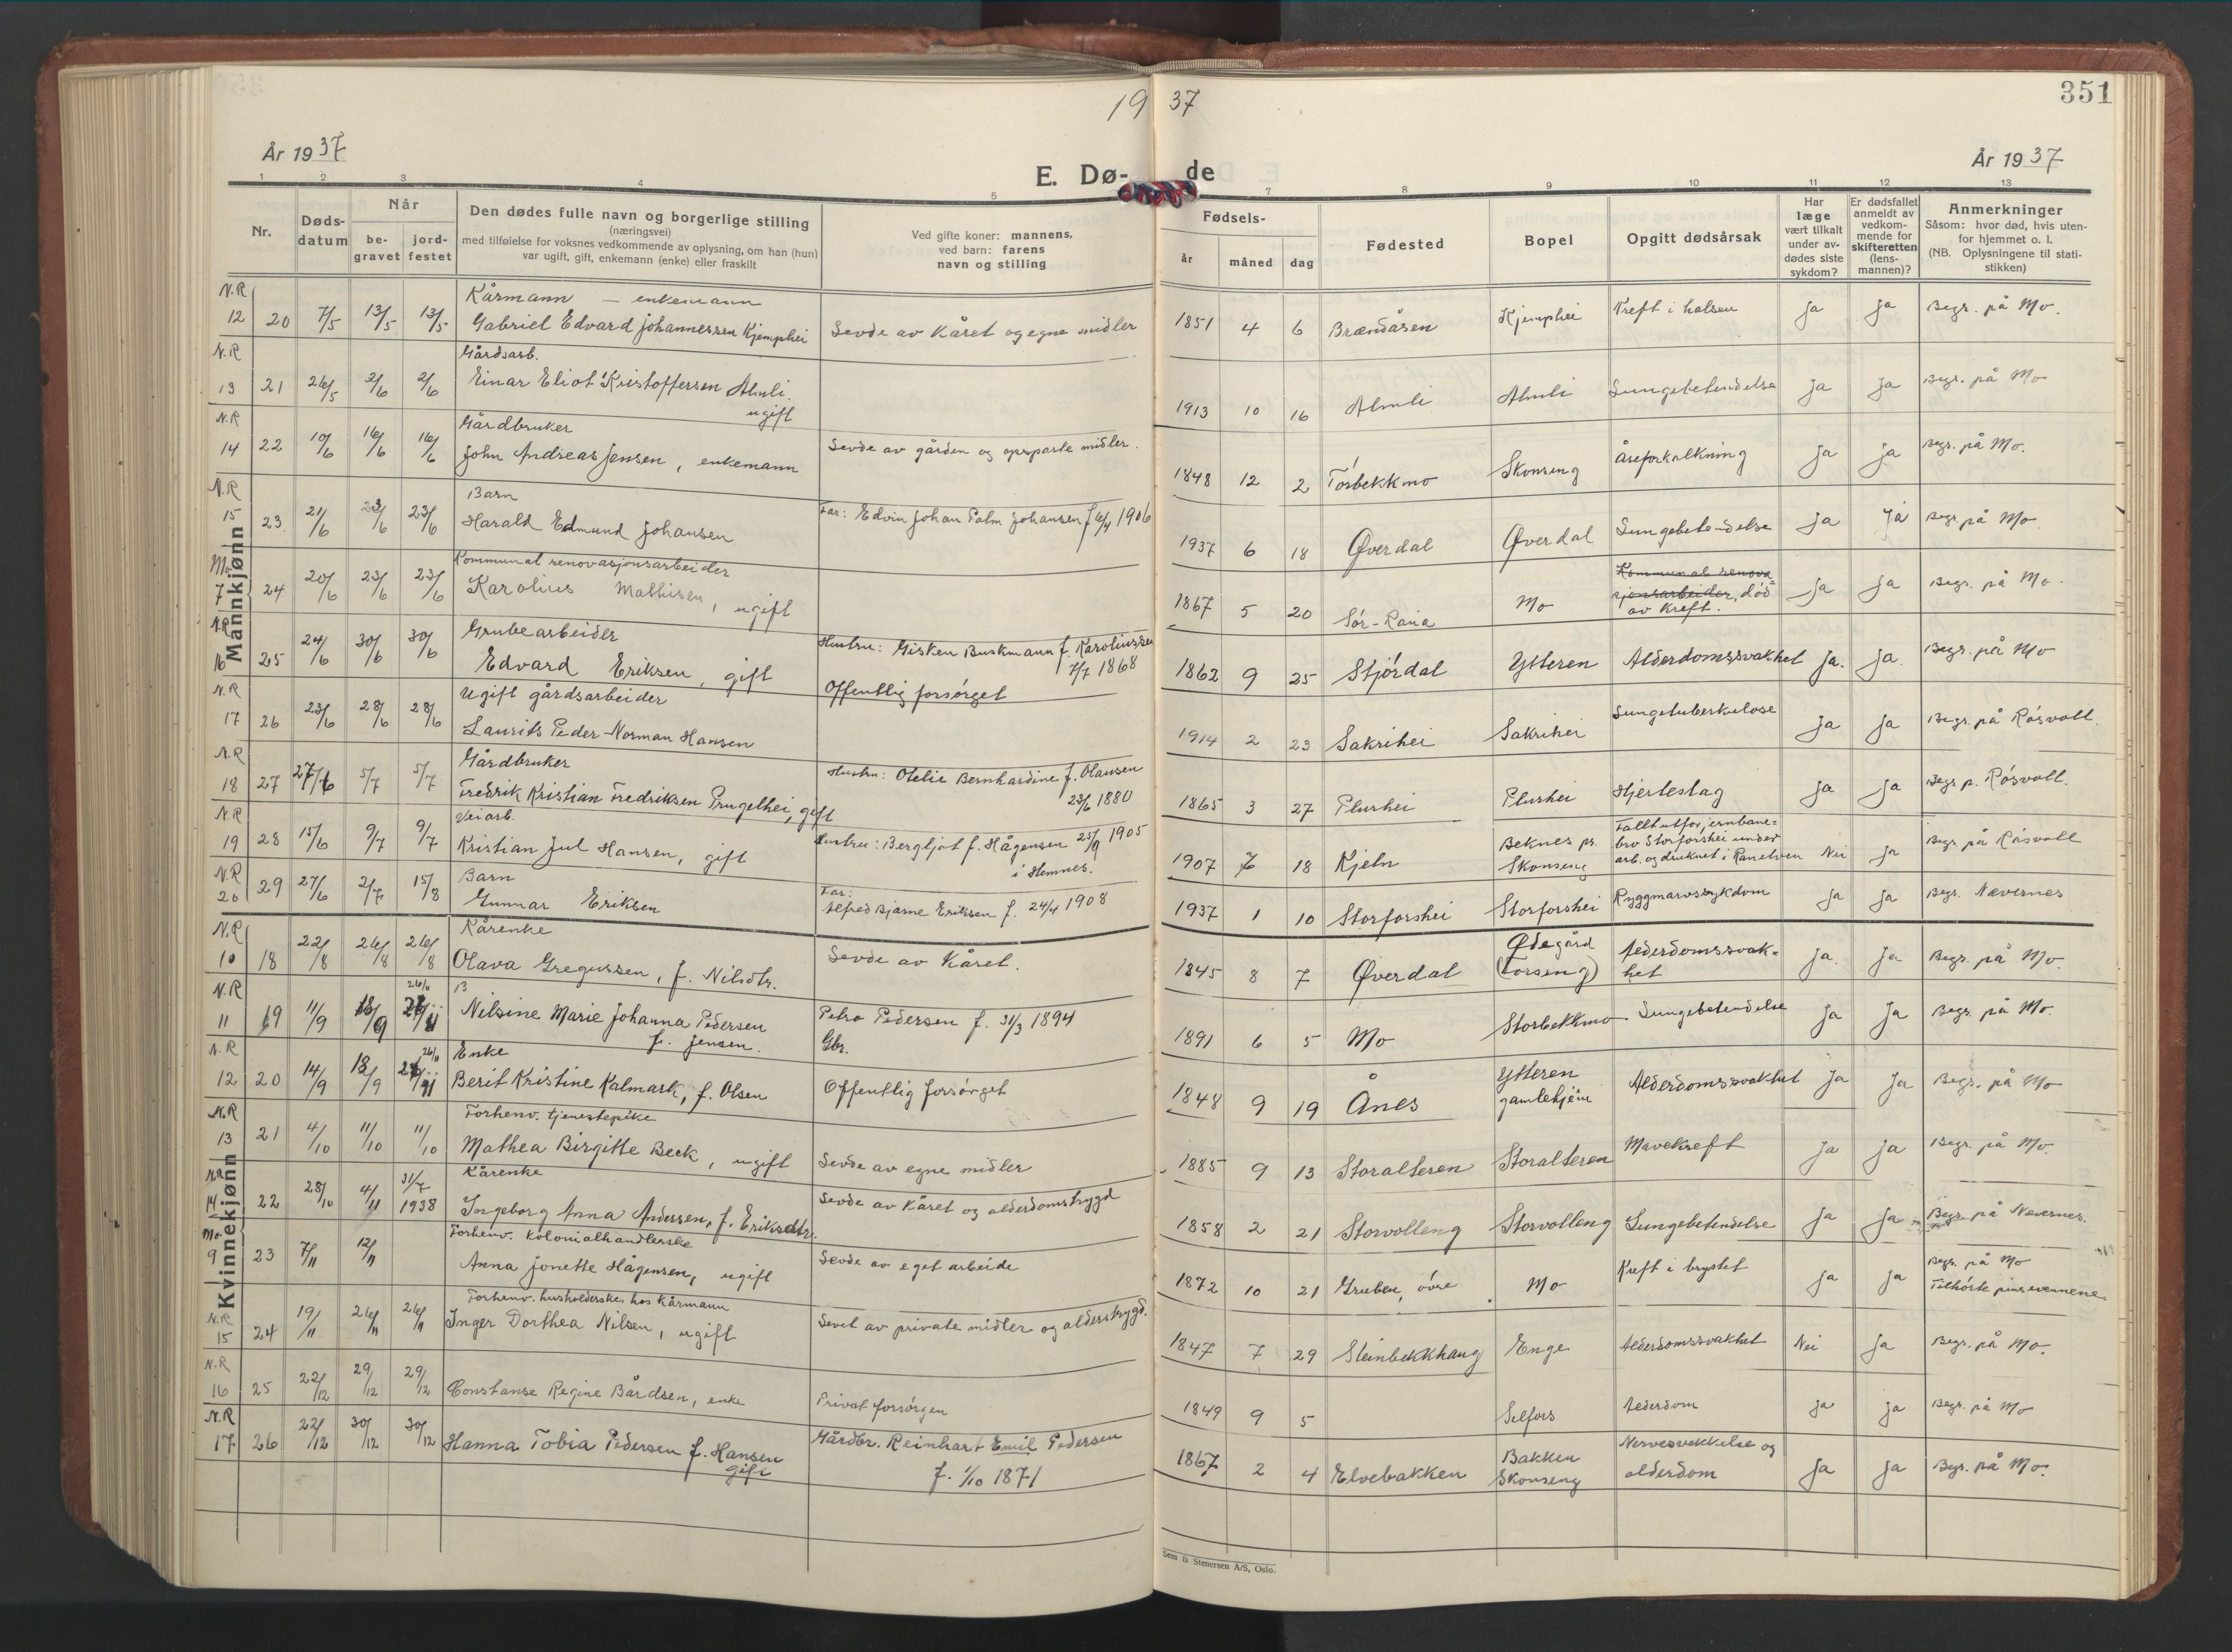 351
19 37
År 1937
År 1937
E. Dø- de
1 2 3 4 5 7 8 9 10 11 12 13
Nr.
Døds-
datum
Når
be-
gravet
jord-
festet
Den dødes fulle navn og borgerlige stilling
(næringsvei)
med tilføielse for voksnes vedkommende av oplysning, om han (hun)
var ugift, gift, enkemann (enke) eller fraskilt
Ved gifte koner: mannens,
ved barn: farens
navn og stilling
Fødsels-
år
måned
dag
Fødested
Bopel
Opgitt dødsårsak
Har
læge
vært tilkalt
under av-
dødes siste
sykdom?
Er dødsfallet
anmeldt av
vedkom-
mende for
skifteretten
(lens-
mannen)?
Anmerkninger
Såsom: hvor død, hvis uten-
for hjemmet o. l.
(NB. Oplysningene til stati-
stikken)
Mannkjønn
N.R Kårmann – enkemann
12 20 7/5 13/5 13/5 Gabriel Edvard Johannessen Kjemphei Levde av kåret og egne midler 1851 4 6 Brændåsen Kjemphei Kreft i halsen Ja Ja Begr. på Mo.
N.R Gårdsarb.
13 21 26/5 2/6 2/6 Einar Eliot Kristoffersen Almli. 1913 10 16 Almli Almli Lungebetendelse Ja Ja Begr. på Mo
ugift
N.R Gårdbruker
14 22 10/6 16/6 16/6 John Andreas Jensen, enkemann Levde av gården og opsparte midler. 1848 12 2 Torbekkmo Skonseng Åreforkalkning Ja Ja Begr. på Mo.
N.R Barn
15 23 21/6 23/6 23/6 Harald Edmund Johansen Far: Edvin Johan Palm Johansen f. 6/4 1906 1937 6 18 Øverdal Øverdal Lungebetendelse Ja Ja Begr. på Mo.
Mo Kommunal renovasjonsarbeider
7 24 20/6 23/6 23/6 Karolius Mathisen, ugift 1867 5 20 Sör-Rana Mo Kommunal renova=
sjonsarbeider, död
av kreft. Ja Ja Begr. på Mo.
N.R Grubearbeider
16 25 24/6 30/6 30/6 Edvard Eriksen, gift Hustru: Gisken Buskmann f. Karoliussen
7/7 1868 1862 9 25 Stjördal Ytteren Alderdomssvakhet Ja. Ja. Begr. på Mo
N.R Ugift gårdsarbeider Offentlig forsörget
17 26 23/6 28/6 28/6 Laurits Peder Norman Hansen 1914 2 23 Sakrihei Sakrihei Lungetuberkulose Ja Ja Begr. på Rösvoll.
N.R Gårdbruker
18 27 27/6 5/7 5/7 Fredrik Kristian Fredriksen Prugelhei, gift Hustru: Otelie Bernhardine f. Olausen
23/6 1880 1865 3 27 Plurhei Plurhei Hjerteslag Ja Ja Begr. p. Rösvoll.
N.R Veiarb.
19 28 15/6 9/7 9/7 Kristian Jul Hansen, gift Hustru: Bergljot f. Hågensen 25/9 1905
i Hemnes. 1907 7 18 Kjeln Beknes pr.
Skonseng Falt utfor jernbane=
bro Storforshei under
arb. og druknet i Ranelven Nei Ja Begr. på Rösvoll
N.R Barn
20 29 27/6 2/7 15/8 Gunnar Eriksen Far:
Alfred Bjarne Eriksen f. 24/4 1908 1937 1 10 Storforshei Storforshei Ryggmarvssykdom Ja Ja Begr. Nævernes
Kvinnekjønn
N.R Kårenke
10 18 22/8 26/8 26/8 Olava Gregussen, f. Nilsdtr. Levde av kåret. 1845 8 7 Øverdal Ødegård
(Forseng) Alderdomssvak=
het Ja. Ja Begr. på Mo.
N.R 26/11
11 19 11/9 18/9 Nilsine Marie Johanna Pedersen
f. Jensen. Petro Pedersen f. 31/3 1894
Gbr. 1891 6 5 Mo Storbekkmo Lungebetendelse Ja Ja Begr. på Mo.
N.R Enke 26/11
12 20 14/9 18/9 Berit Kristine Kalmark, f. Olsen Offentlig forsörget 1848 9 19 Ånes Ytteren
gamlehjem Alderdomssvakhet Ja Ja Begr. på Mo
N.R Forhenv. tjenestepike
13 21 4/10 11/10 11/10 Mathea Birgitte Beck, ugift Levde av egne midler 1885 9 13 Storalteren Storalteren Mavekreft Ja Ja Begr. på Mo.
N.R Kårenke
14 22 28/10 4/11 31/7
1938 Ingeborg Anna Andersen, f. Eriksdtr. Levde av kåret og alderdomstrygd 1858 2 21 Storvolleng Storvolleng Lungebetendelse Ja Ja Begr. på Nævernes.
Mo Forhenv. kolonialhandlerske
9 23 7/11 12/11 Anna Jonette Hågensen, ugift Levde av eget arbeide 1872 10 21 Gruben, övre Mo Kreft i brystet Ja Ja Begr. på Mo
Tilhörte pinsevennene
N.R Forhenv. husholderske hos kårmann
15 24 19/11 26/11 26/11 Inger Dorthea Nilsen, ugift Levet av private midler og alderstrygd. 1847 7 29 Steinbekkhaug Enge Alderdomssvakhet Nei Ja Begr. på Mo.
N.R
16 25 22/12 29/12 29/12 Constanse Regine Bårdsen, enke Privat forsörgen 1849 9 5 Selfors Alderdom Ja Ja Begr. på Mo
N.R
17 26 22/12 30/12 30/12 Hanna Tobia Pedersen f. Hansen
gift Gårdbr. Reinhart Emil Pedersen
f. 1/10 1871 1867 2 4 Elvebakken Bakken
Skonseng Nervesvekkelse og
alderdom Ja Ja Begr. på Mo.
Sem & Stenersen A/S, Oslo.